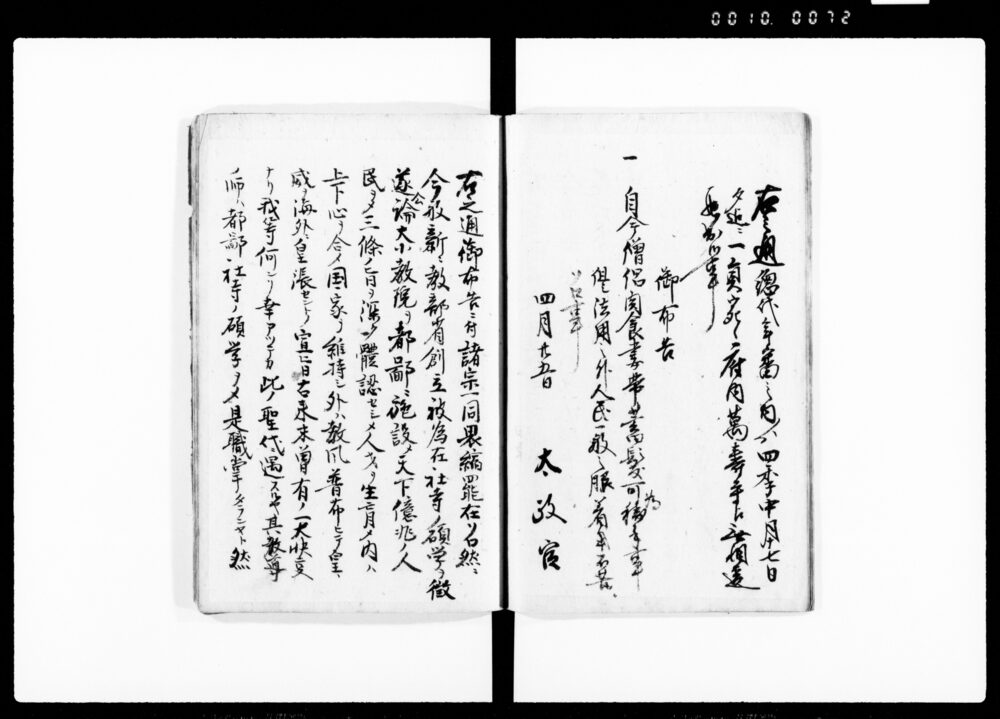 0010. 0072
右之通總代年番之内ゟ四季中月十七日
夕迄ニ一員宛府内萬壽寺江無相違
御布告
一
自今僧侶肉食妻帯蓄髪可為勝手事
但法用之外人民一般之服着用不苦
四月廿五日
太政官
右之通御布告ニ付諸宗一同畏縮罷在候然ニ
今般新ニ教部省創立被為在社寺ノ碩学ヲ徴
遂公論大小教院ヲ都鄙ニ施設メ天下億兆ノ人
民ヲメ三條ノ旨ヲ深ク體認セシメ人才ヲ生育メ内ハ
上下心ヲ合メ国家ヲ維持シ外ハ教風普布ヒテ皇
威ヲ海外ニ皇張セヨトノ宣旨古来未曽有ノ一大快事
ナリ我等何ノ幸アツテカ此ノ聖代ニ遇スルヤ其教導
師ハ都鄙社寺ノ碩学ヲメ是職掌タラシヤト然